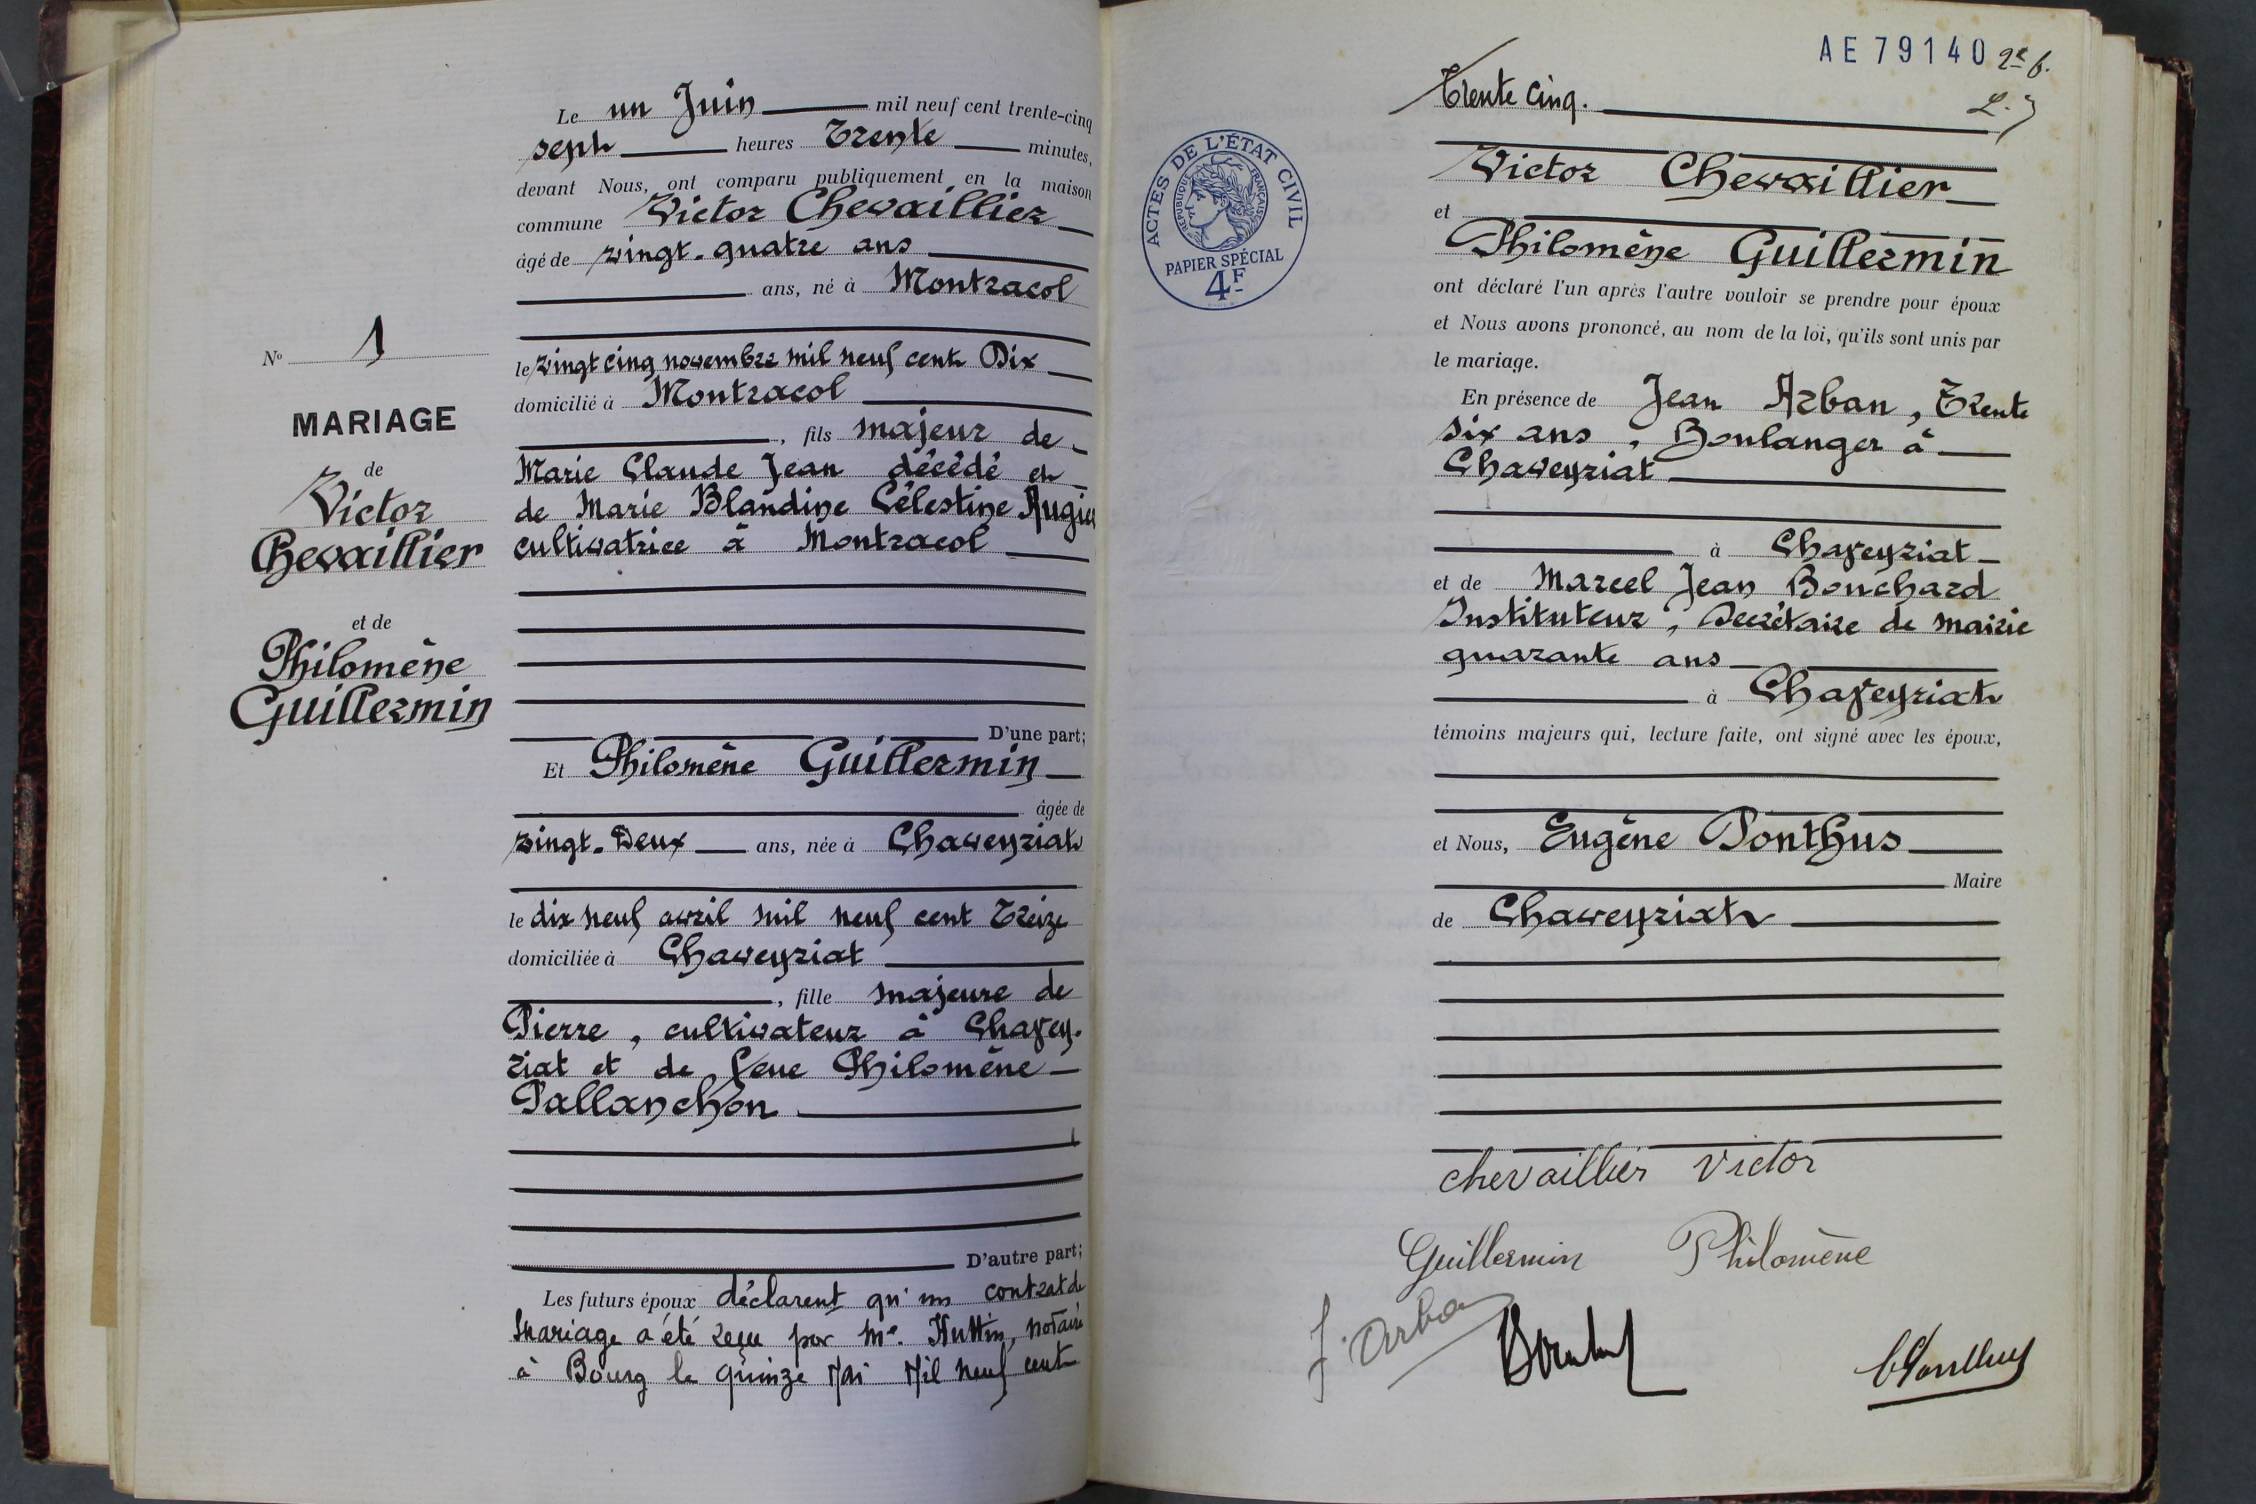 Le un Juin mil neuf cent trente-cinq
sept heures Trente minutes,
devant Nous, ont comparu publiquement en la maison
commune Victor Chevaillier
âgé de vingt-quatre ans
ans, né à Montracol
le vingt cinq novembre mil neuf cent Dix
domicilié à Montracol
, fils majeur de
Marie Claude Jean décédé et
de Marie Blandine Célestine Augier
cultivatrice à Montracol
D'une part;
Et Philomène Guillermin
âgée de
vingt-Deux ans, née à Chaveyriat
le dix neuf avril mil neuf cent Treize
domiciliée à Chaveyriat
, fille majeure de
Pierre, cultivateur à Chavey-
riat et de feue Philomène
Pallanchon
D'autre part;
Les futurs époux déclarent qu'un contrat de
Mariage a été reçu par Me. Huttin, notaire
à Bourg le quinze Mai Mil neuf cent
No 1
MARIAGE
de
Victor
Chevaillier
et de
Philomène
Guillermin
AE79140
Trente cinq.
ACTES DE L'ÉTAT CIVIL
RÉPUBLIQUE FRANÇAISE
PAPIER SPÉCIAL
4F
Victor Chevaillier
et
Philomène Guillermin
ont déclaré l'un après l'autre vouloir se prendre pour époux
et Nous avons prononcé, au nom de la loi, qu'ils sont unis par
le mariage.
En présence de Jean Arban, Trente
six ans, Boulanger à
Chaveyriat
à Chaveyriat
et de Marcel Jean Bouchard
Instituteur, Secrétaire de mairie
quarante ans
à Chaveyriat
témoins majeurs qui, lecture faite, ont signé avec les époux,
et Nous, Eugène Ponthus
Maire
de Chaveyriat
chevaillier victor
Guillermin Philomène
J. Arban
EPonthus